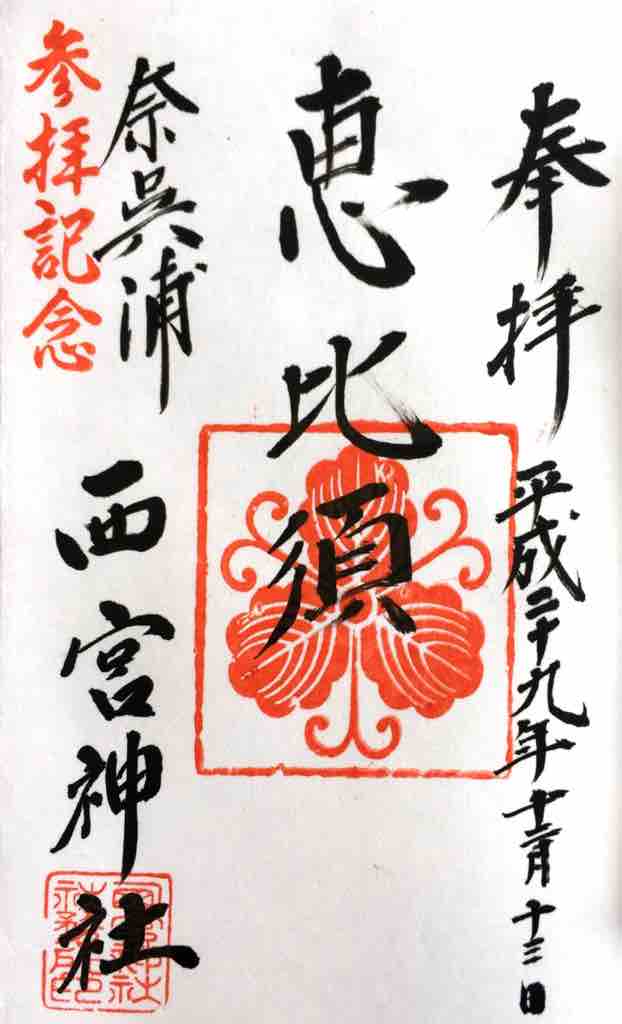 奉拝 平成二十九年十二月十三日
恵比須
奈呉浦 西宮神社
参拝記念